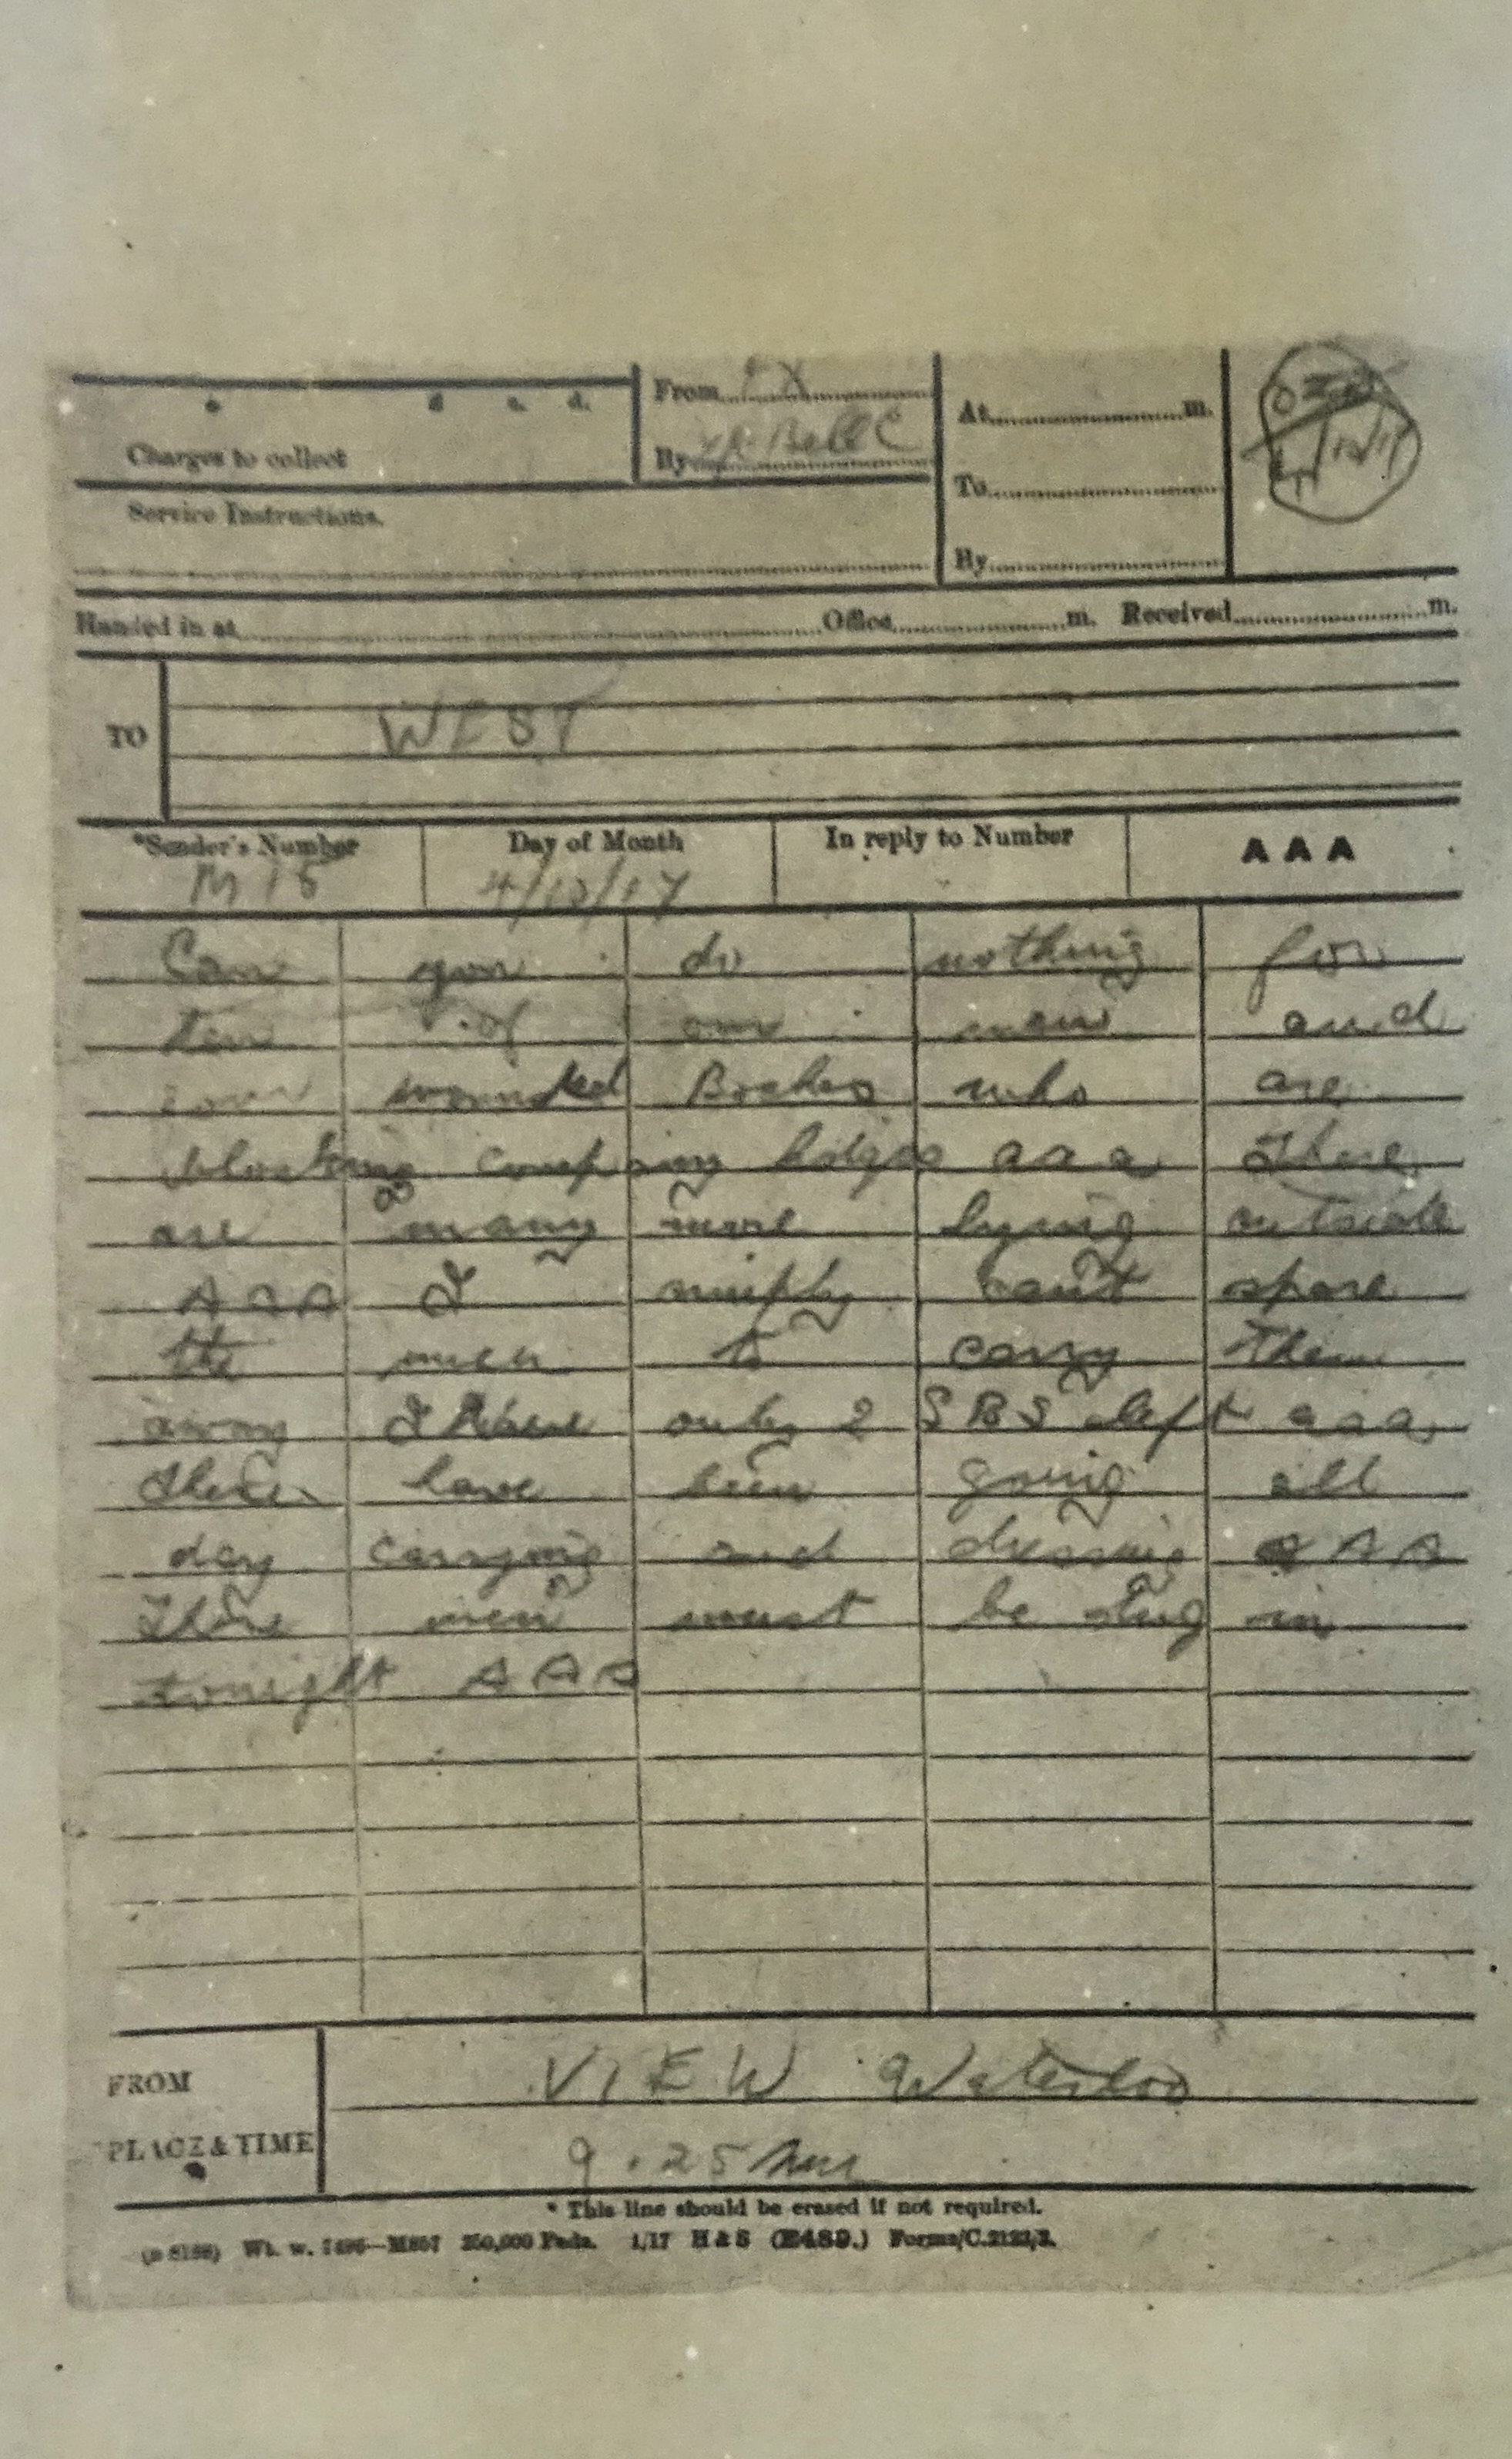 d. c. d.
Charges to collect
Service Instructions.
From
By
At m.
To
By
Handed in at Office m. Received m.
TO WEST
*Sender's Number Day of Month In reply to Number AAA
M 15 4/10/17
Can you do nothing for
ten of our men and
wounded Boches who are
blocking aaa There
are many more lying outside
AAA I simply can't spare
the men to carry them
away I have only 2 SBS left aaa
These have been going all
day carrying and dressing AAA
These men must be in
tonight AAA
FROM VIEW Waterloo
PLACE & TIME 9.25
* This line should be erased if not required.
250,000 Pads. 1/17 H & S (E489.) Forms/C.2121/3.